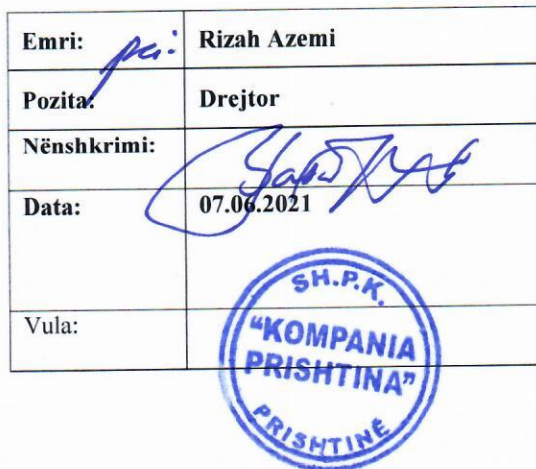 Emri: Rizah Azemi
Pozita: Drejtor
Nënshkrimi:
Data: 07.06.2021
Vula:
SH.P.K.
"KOMPANIA
PRISHTINA"
PRISHTINË